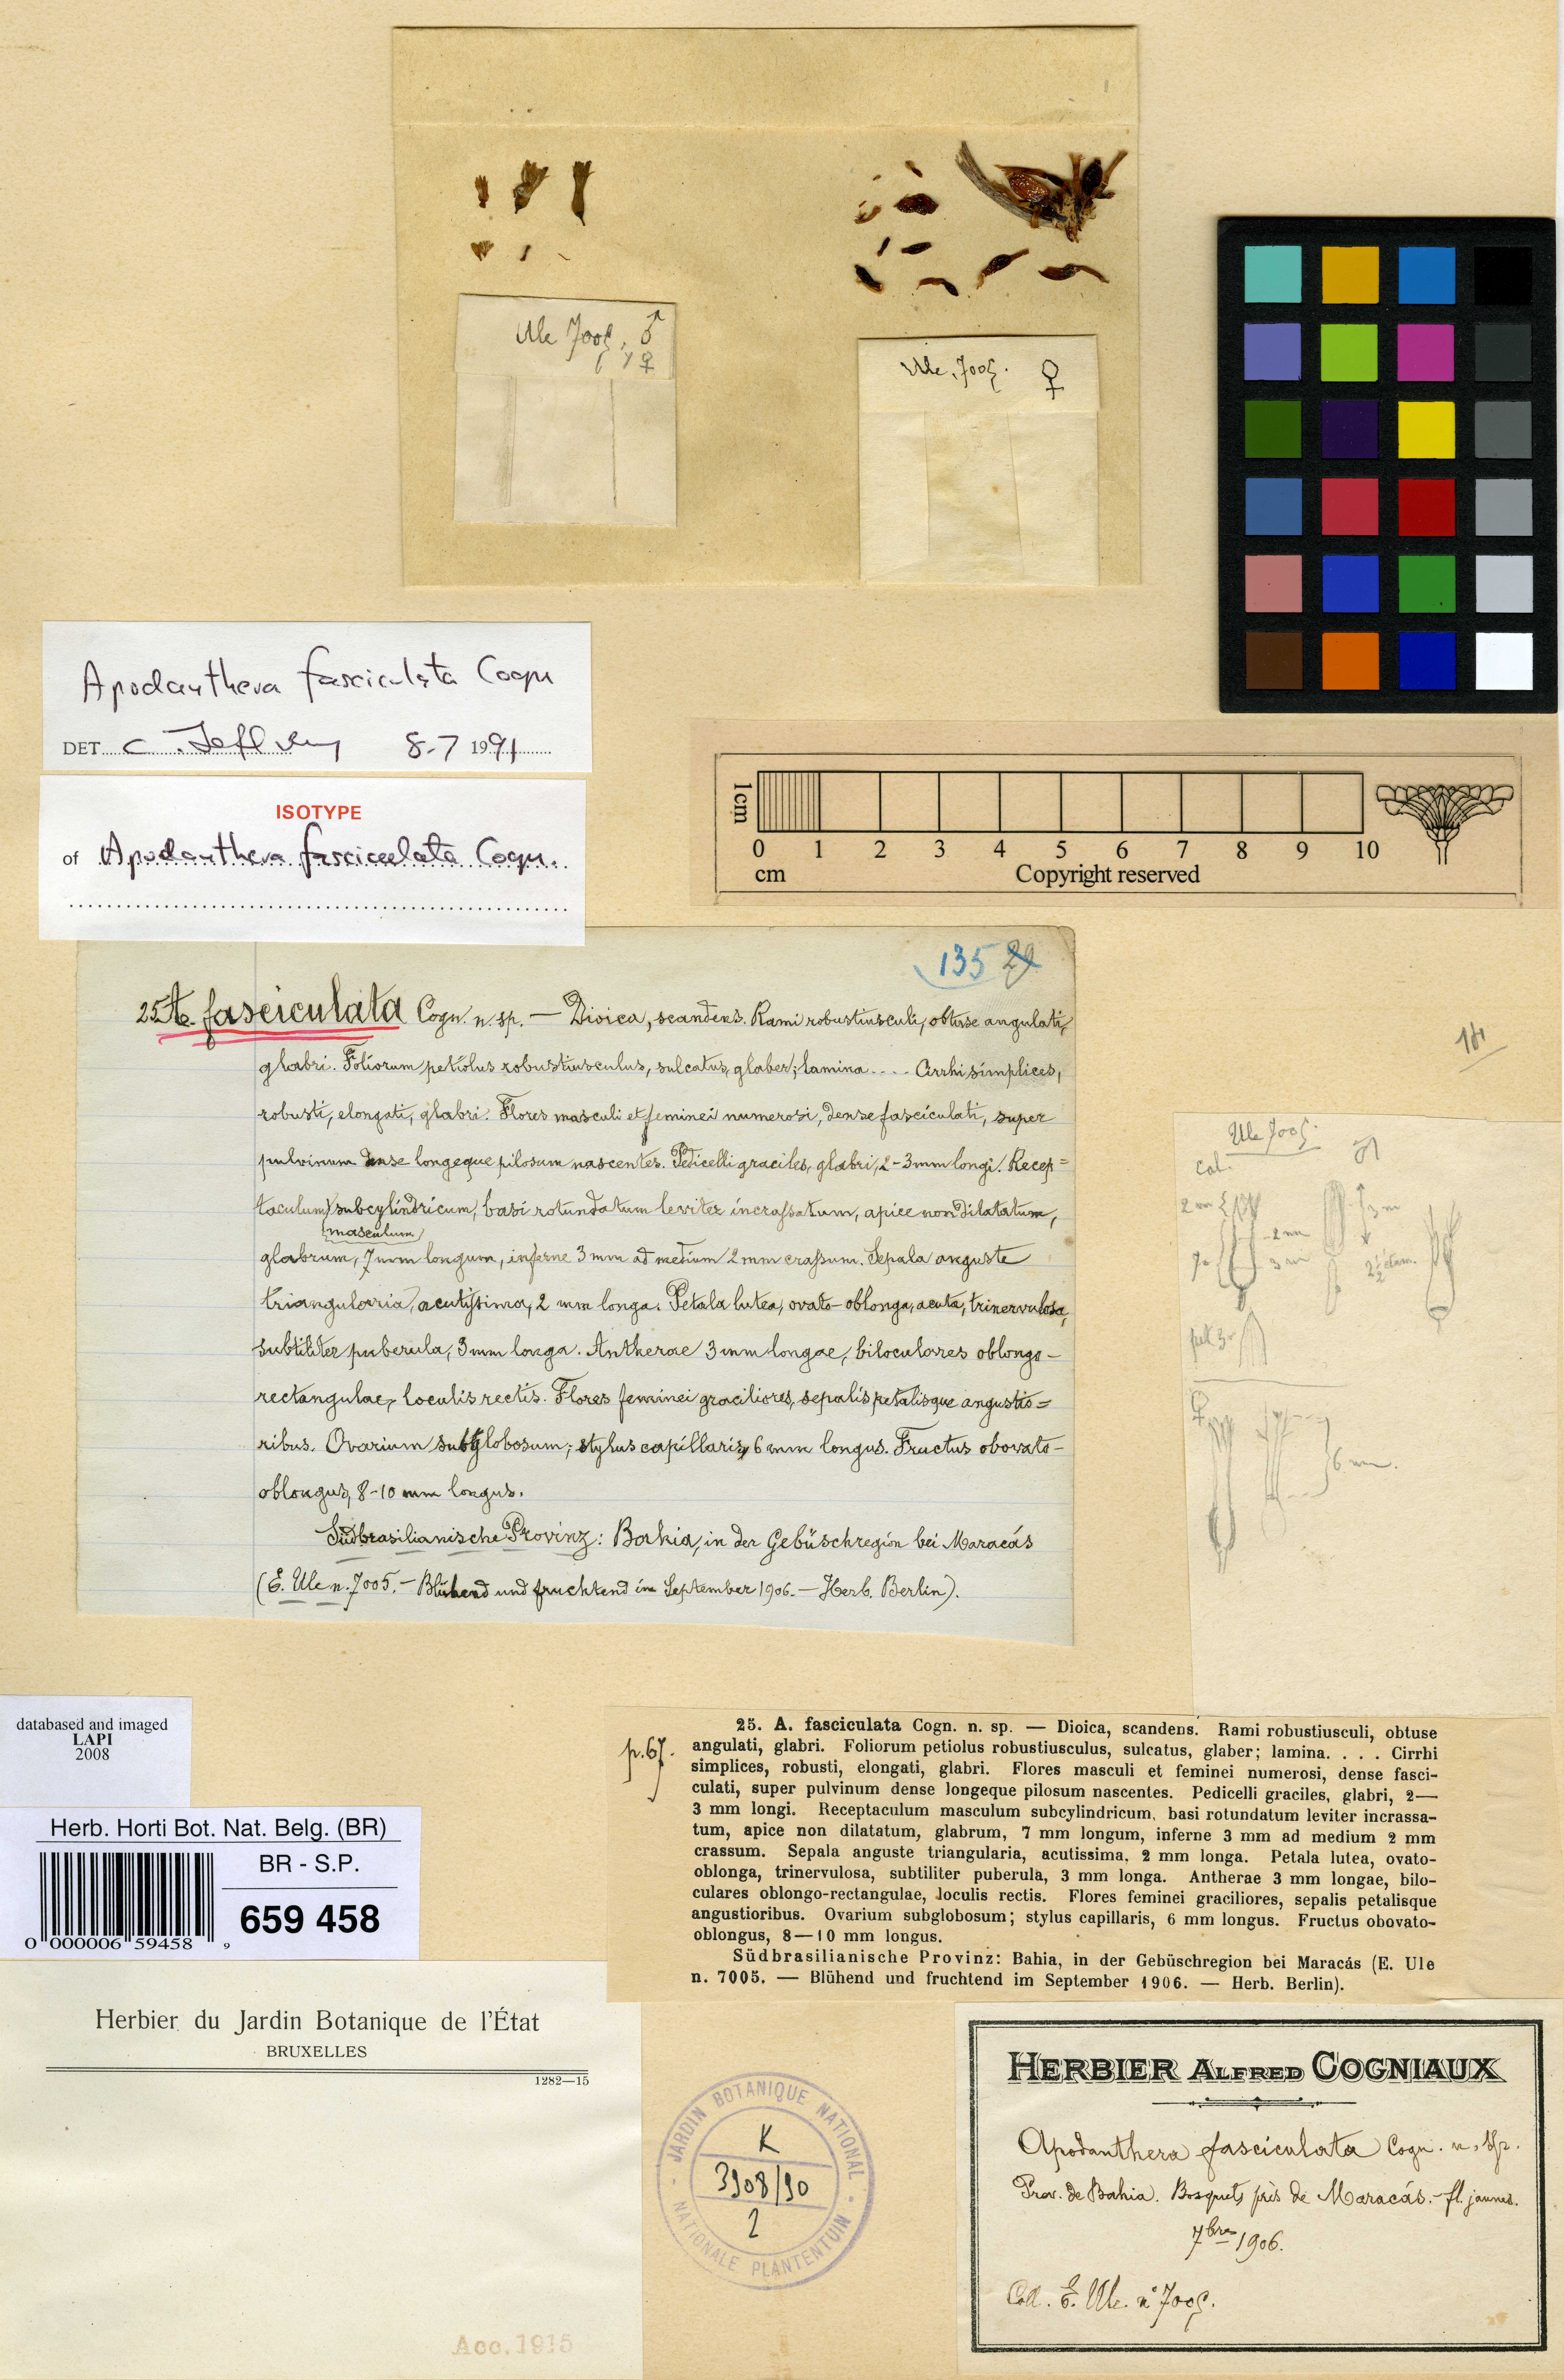 Ule 7005, ♂
y ♀
Ule, 7005. ♀
Apodanthera fasciculata Cogn
DET. C. Jeffrey 8-7 1991
ISOTYPE
of Apodanthera fasciculata Cogn.
1 cm
0 1 2 3 4 5 6 7 8 9 10
cm Copyright reserved
135 29
25 A. fasciculata Cogn. n. sp. — Dioica, scandens. Rami robustiusculi, obtuse angulati,
glabri. Foliorum petiolus robustiusculus, sulcatus, glaber; lamina.... Cirrhi simplices,
robusti, elongati, glabri. Flores masculi et feminei numerosi, dense fasciculati, super
pulvinum dense longeque pilosum nascentes. Pedicelli graciles, glabri, 2-3 mm longi. Recep=
taculum subcylindricum, basi rotundatum leviter incrassatum, apice non dilatatum,
masculum
glabrum, 7 mm longum, inferne 3 mm ad medium 2 mm crassum. Sepala anguste
triangularia, acutissima, 2 mm longa. Petala lutea, ovato-oblonga, acuta, trinervulosa,
subtiliter puberula, 3 mm longa. Antherae 3 mm longae, biloculares oblongo-
rectangulae, loculis rectis. Flores feminei graciliores, sepalis petalisque angustio=
ribus. Ovarium subglobosum; stylus capillaris, 6 mm longus. Fructus obovato-
oblongus, 8-10 mm longus.
Südbrasilianische Provinz: Bahia, in der Gebüschregion bei Maracás
(E. Ule n. 7005. — Blühend und fruchtend im September 1906. — Herb. Berlin).
Ule 7005.
♂
cal.
2 mm
3 m
2 mm
7
3 m
2 1/2
pet 3
♀
6 mm.
databased and imaged
LAPI
2008
p. 67.
25. A. fasciculata Cogn. n. sp. — Dioica, scandens. Rami robustiusculi, obtuse
angulati, glabri. Foliorum petiolus robustiusculus, sulcatus, glaber; lamina. . . . Cirrhi
simplices, robusti, elongati, glabri. Flores masculi et feminei numerosi, dense fasci-
culati, super pulvinum dense longeque pilosum nascentes. Pedicelli graciles, glabri, 2—
3 mm longi. Receptaculum masculum subcylindricum, basi rotundatum leviter incrassa-
tum, apice non dilatatum, glabrum, 7 mm longum, inferne 3 mm ad medium 2 mm
crassum. Sepala anguste triangularia, acutissima, 2 mm longa. Petala lutea, ovato-
oblonga, trinervulosa, subtiliter puberula, 3 mm longa. Antherae 3 mm longae, bilo-
culares oblongo-rectangulae, loculis rectis. Flores feminei graciliores, sepalis petalisque
angustioribus. Ovarium subglobosum; stylus capillaris, 6 mm longus. Fructus obovato-
oblongus, 8—10 mm longus.
Südbrasilianische Provinz: Bahia, in der Gebüschregion bei Maracás (E. Ule
n. 7005. — Blühend und fruchtend im September 1906. — Herb. Berlin).
Herb. Horti Bot. Nat. Belg. (BR)
BR - S.P.
659 458
0 000006 59458 9
Herbier du Jardin Botanique de l'État
BRUXELLES
1282—15
Acc. 1915
JARDIN BOTANIQUE NATIONAL
NATIONALE PLANTENTUIN
K
3908/90
2
HERBIER ALFRED COGNIAUX
Apodanthera fasciculata Cogn. n. sp.
Prov. de Bahia. Bosquets près de Maracás. - fl. jaunes.
7bre 1906.
Coll. E. Ule n° 7005.